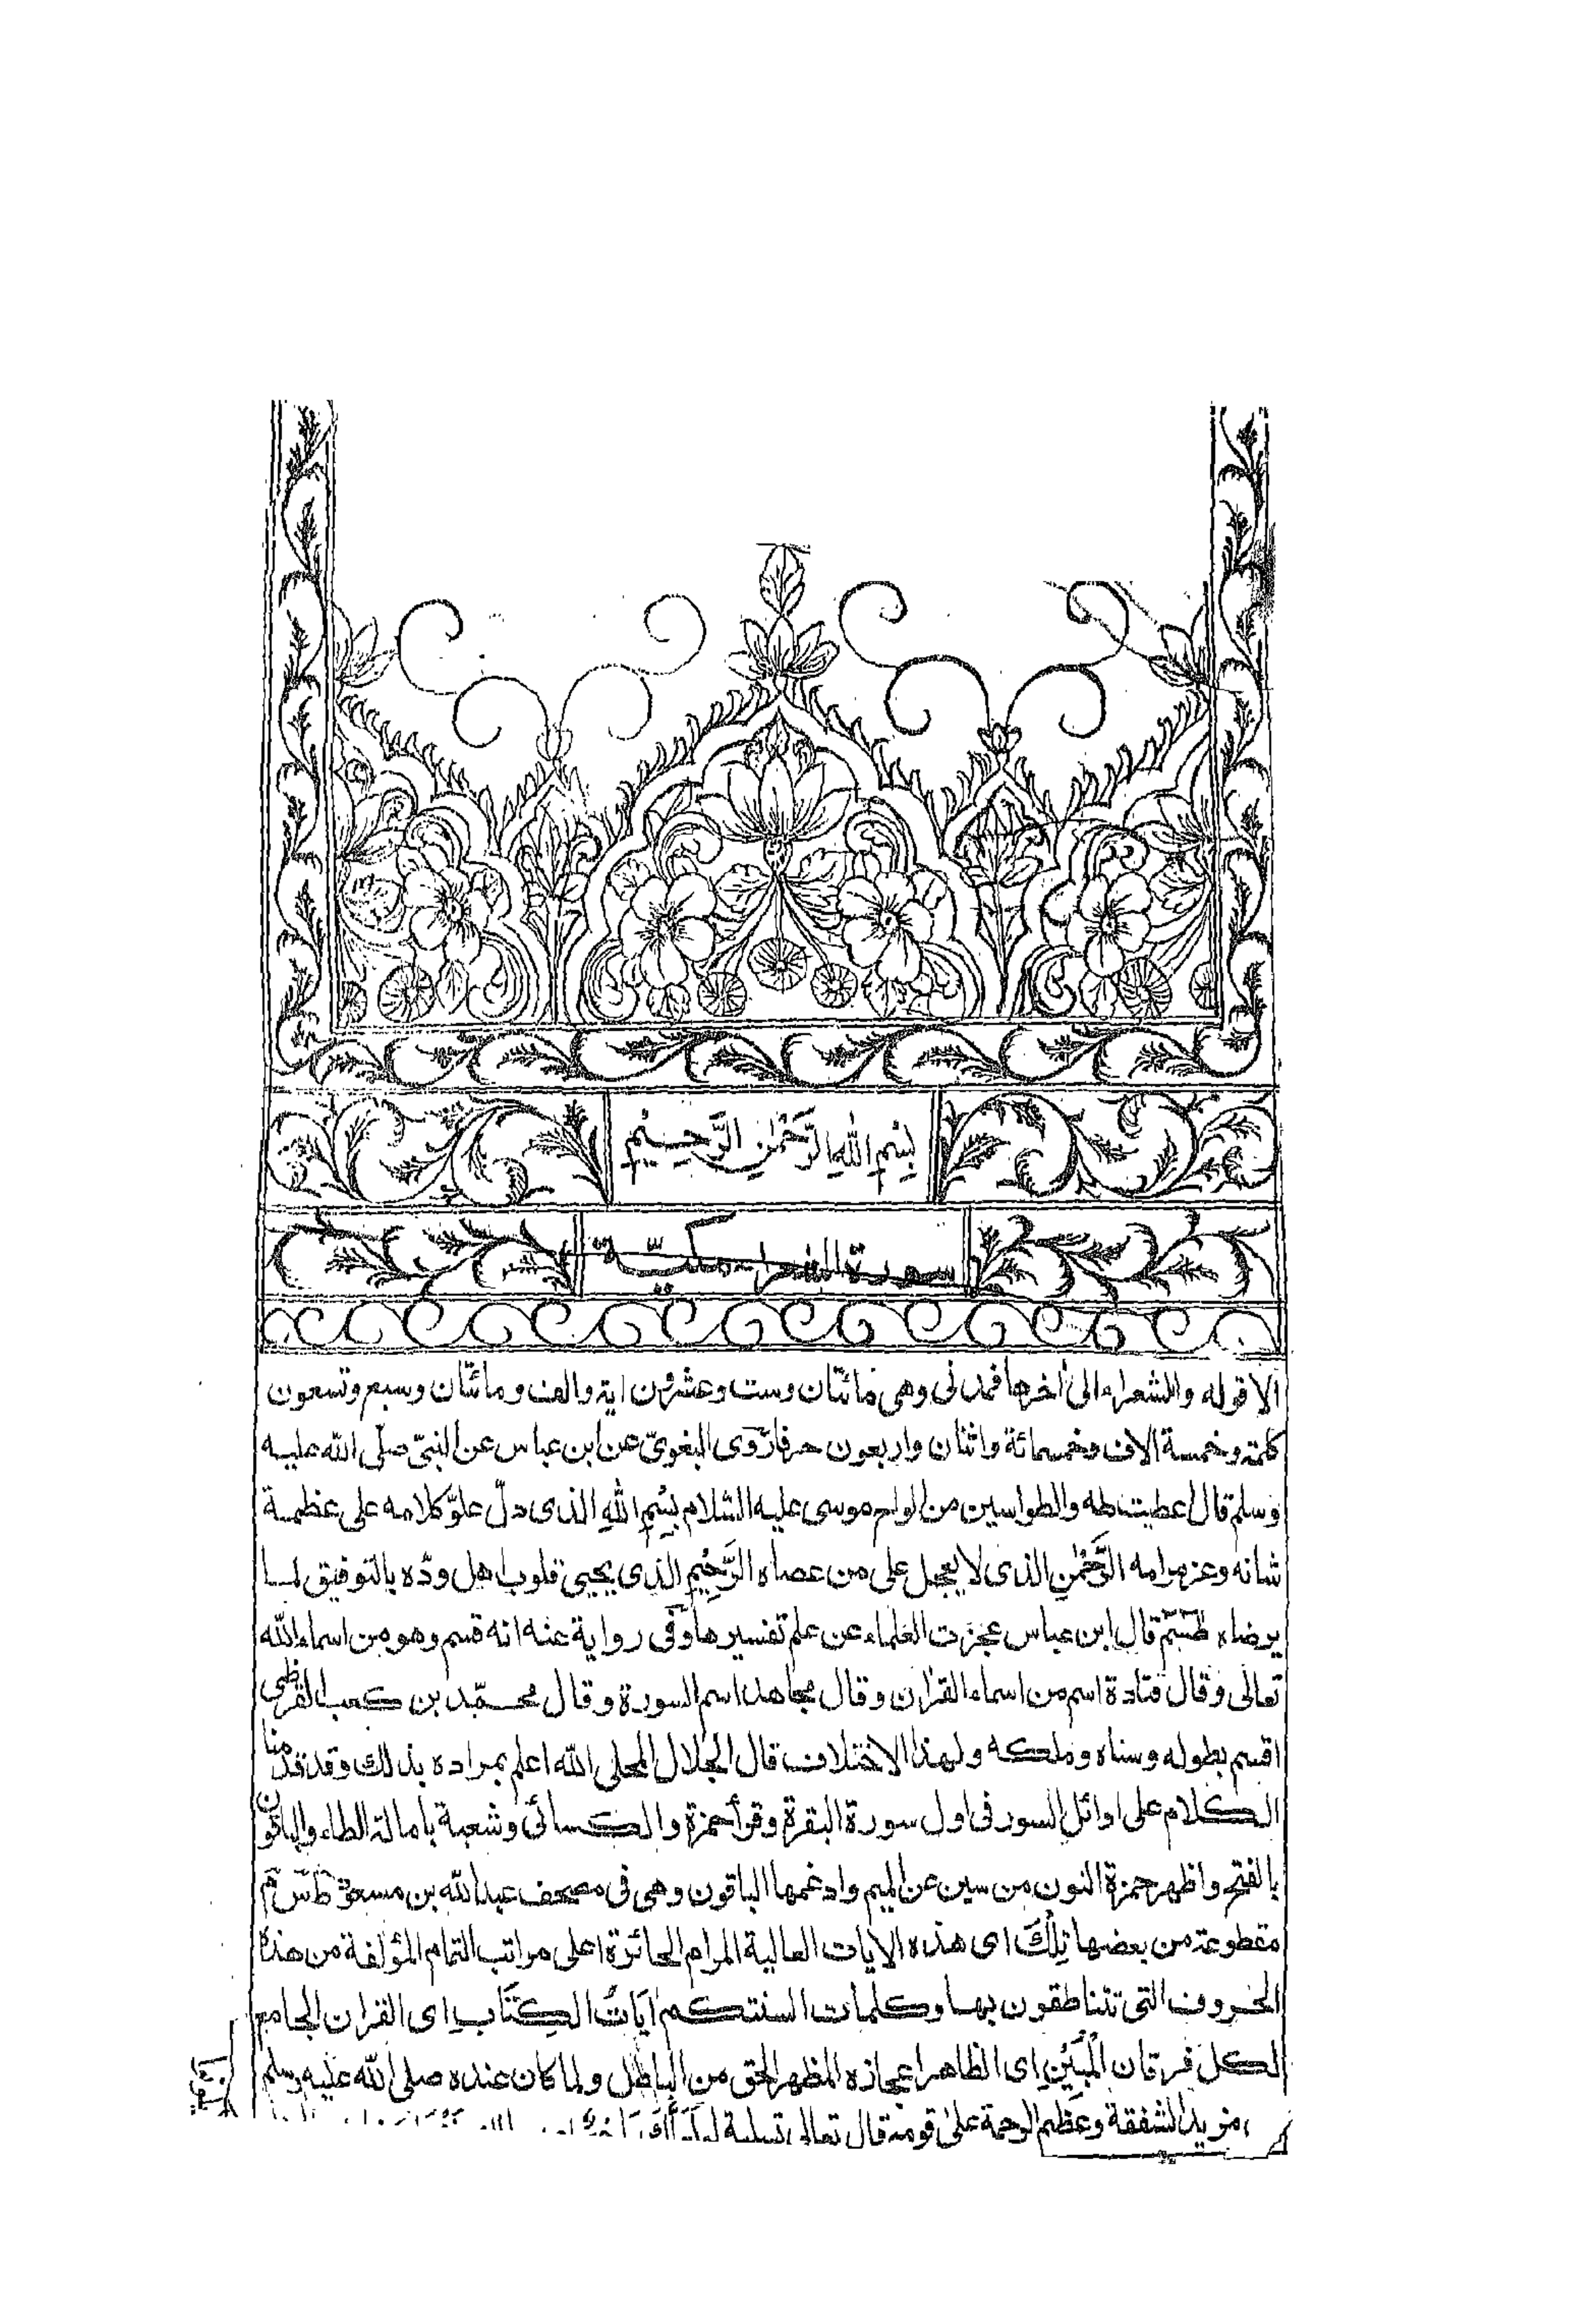 بِسْمِ اللهِ الرَّحْمٰنِ الرَّحِيْمِ
سورة الشعراء مكيّة
الا قوله والشعراء الى اخرها فمدنى وهى مائتان وست وعشرون اية والف ومائتان وسبع وتسعون
كلمة وخمسة الاف وخمسمائة واثنان واربعون حرفا روى البغوىّ عن ابن عباس عن النبىّ صلّى الله عليه
وسلم قال اعطيت طه والطواسين من الواح موسى عليه السّلام بِسْمِ اللهِ الذى دلّ علوّ كلامه على عظمة
شانه وعز مرامه الرَّحْمٰنِ الذى لا يعجل على من عصاه الرَّحِيْمِ الذى يحيى قلوب اهل ودّه بالتوفيق لما
يرضاه طٰسٓمّٓ قال ابن عباس عجزت العلماء عن علم تفسيرها وفى رواية عنه انه قسم وهو من اسماء الله
تعالى وقال قتادة اسم من اسماء القران وقال مجاهد اسم السورة وقال محمّد بن كعب القرظى
اقسم بطوله وسناه وملكه ولهذا الاختلاف قال الجلال المحلى الله اعلم بمراده بذلك وقد قدمنا
الكلام على اوائل السور فى اول سورة البقرة وقرأ حمزة والكسائى وشعبة بامالة الطاء والباقون
بالفتح واظهر حمزة النون من سين عن الميم وادغمها الباقون وهى فى مصحف عبد الله بن مسعود طٓ سٓ مٓ
مقطوعة من بعضها تِلْكَ اى هذه الايات العالية المرام الحائزة اعلى مراتب التمام المؤلفة من هذه
الحروف التى تتناطقون بها وكلمات السنتكم اٰيَاتُ الْكِتٰبِ اى القران الجامع
لكل فرقان الْمُبِيْنِ اى الظاهر اعجازه المظهر الحق من الباطل ولما كان عنده صلى الله عليه وسلم
مزيد الشفقة وعظيم الرحمة على قومه قال تعالى تسلية له